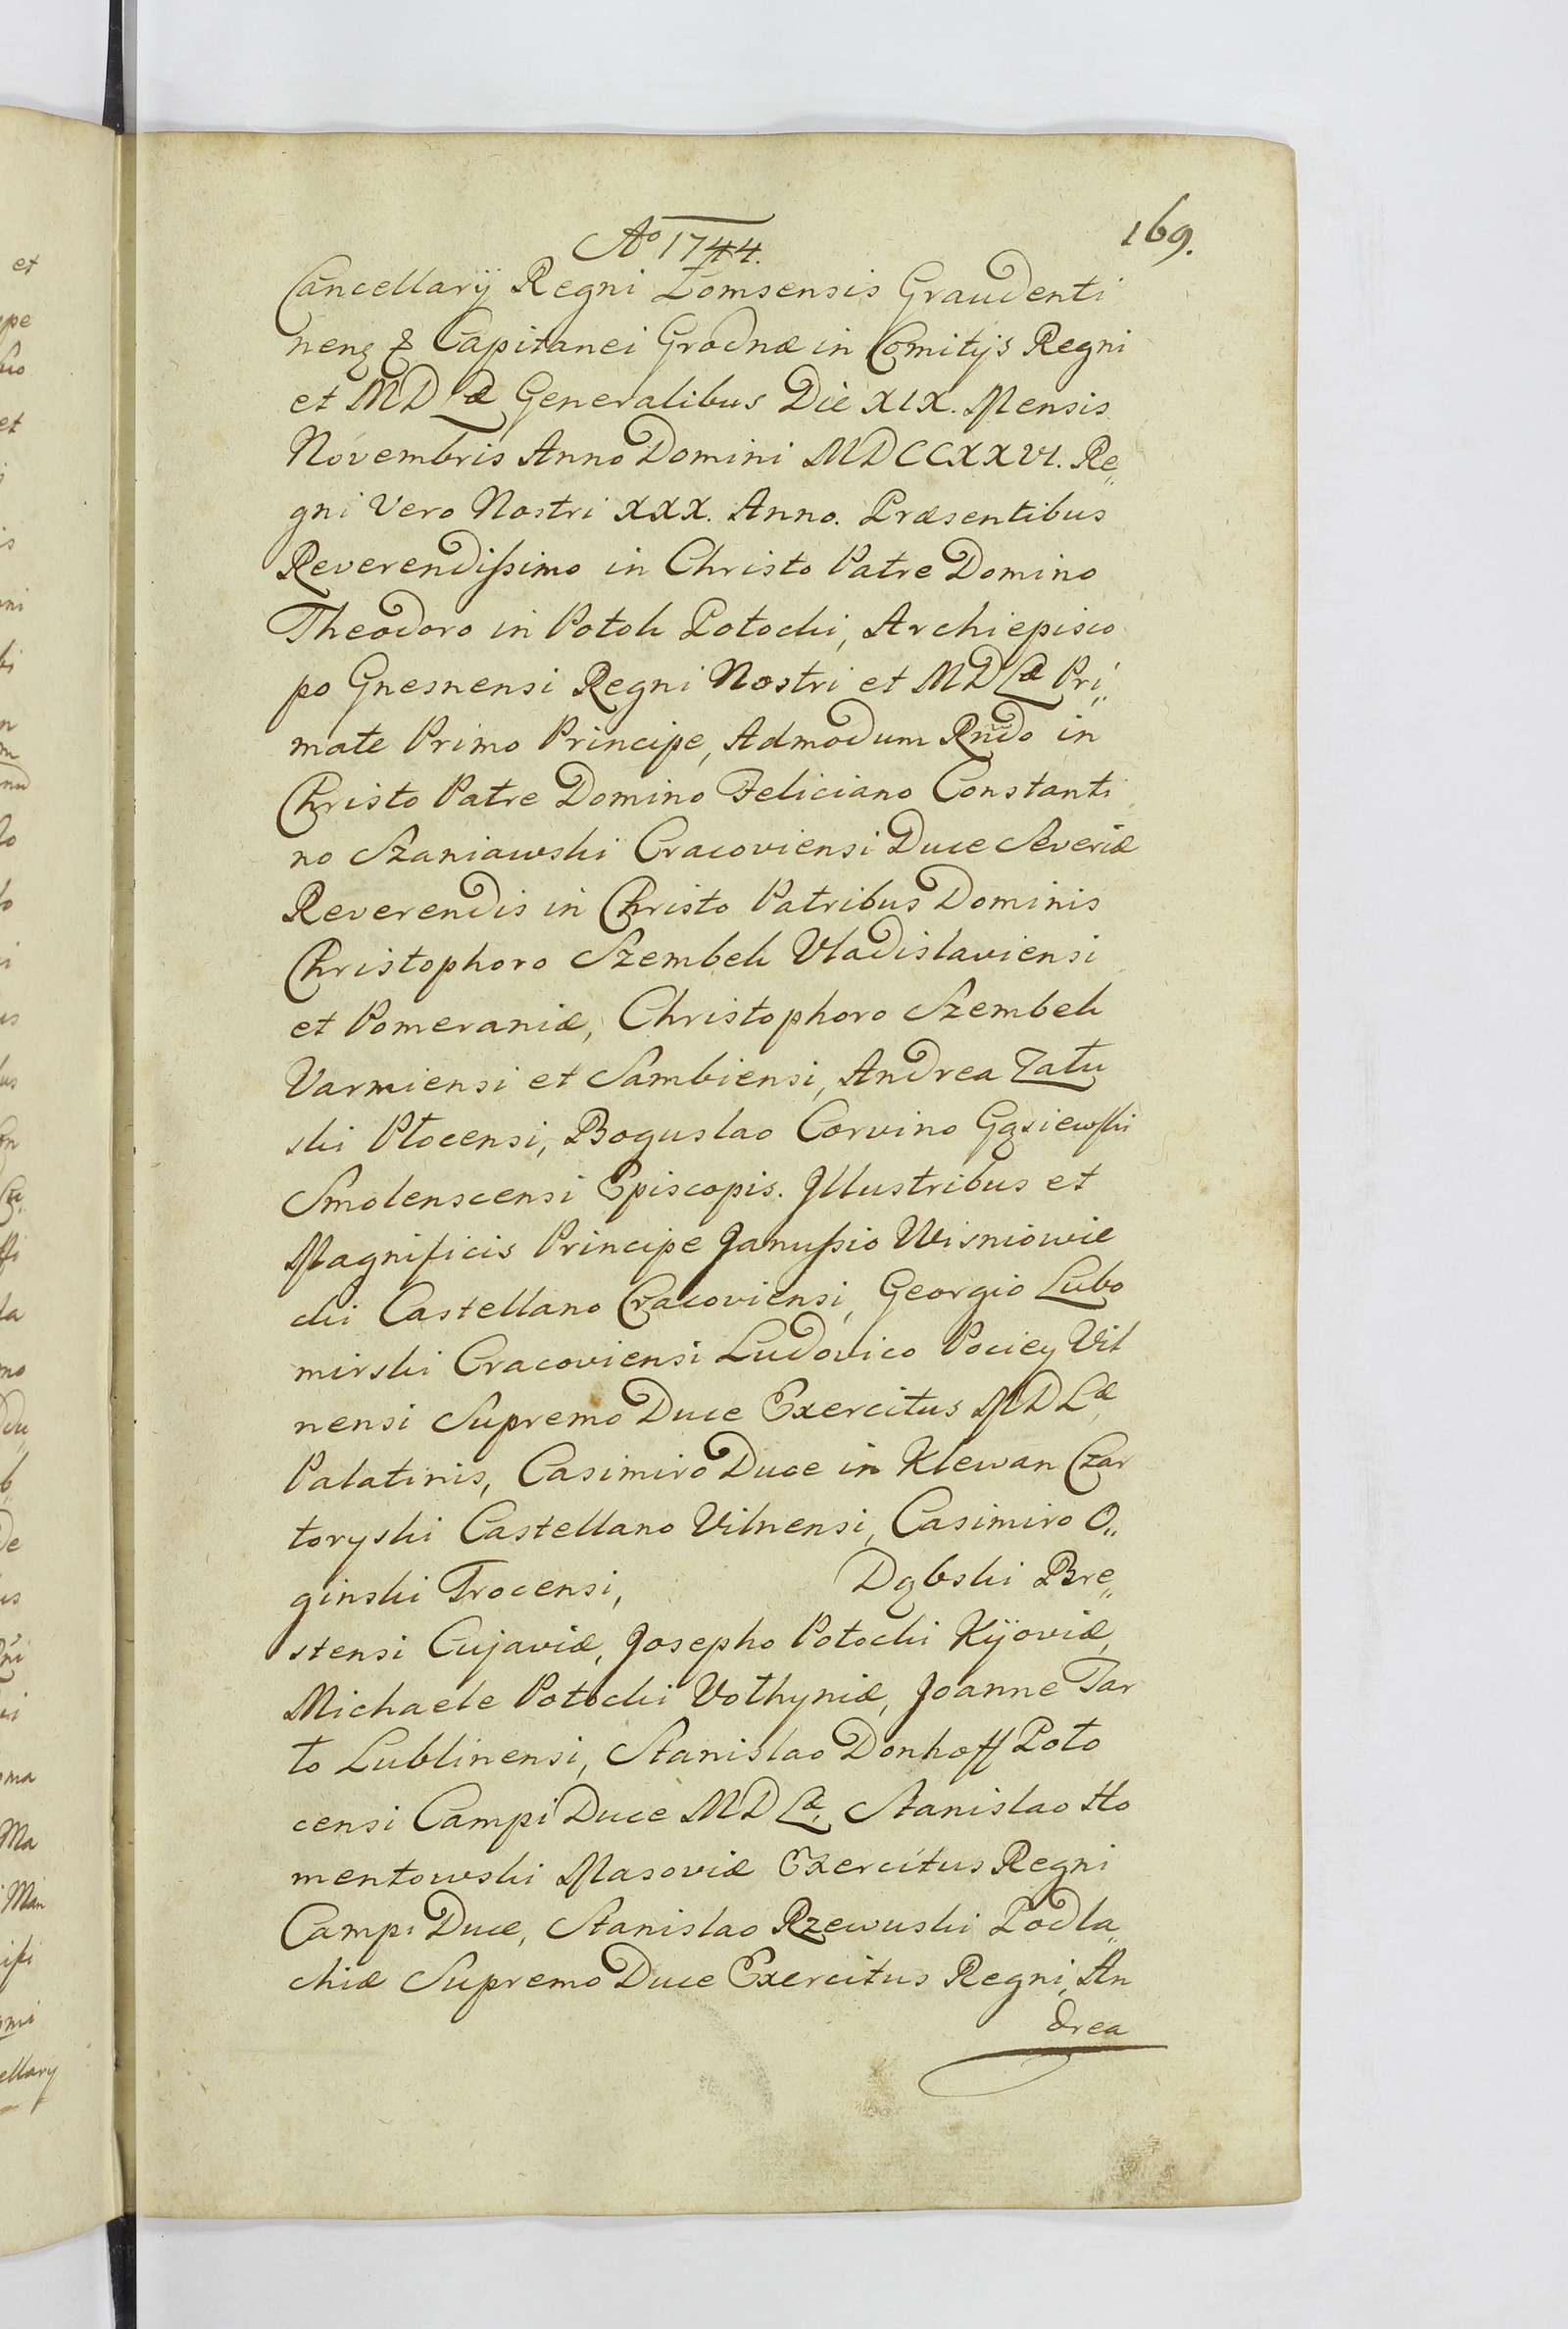 Ao 1744.
169.
Cancellarÿ Regni Łomsensis Graudenti
nens & Capitanei Grodnæ in Comitÿs Regni
et MDLæ Generalibus Die XIX. Mensis
Novembris Anno Domini MDCCXXVI. Re„
gni Vero Nostri XXX. Anno. Præsentibus
Reverendissimo in Christo Patre Domino
Theodoro in Potok Potocki, Archiepisco
po Gnesnensi Regni Nostri et MDLæ Pri„
mate Primo Principe, Admodum Rndo in
Christo Patre Domino Feliciano Constanti
no Szaniawski Cracoviensi Duce Severiæ
Reverendis in Christo Patribus Dominis
Christophoro Szembek Vladislaviensi
et Pomeraniæ, Christophoro Szembek
Varmiensi et Sambiensi, Andrea Zału
ski Płocensi, Boguslao Corvino Gąsiewski
Smolenscensi Episcopis. Illustribus et
Magnificis Principe Janussio Wisniowie
cki Castellano Cracoviensi, Georgio Lubo
mirski Cracoviensi Ludovico Pociey Vil
nensi Supremo Duce Exercitus MDLæ
Palatinis, Casimiro Duce in Klewan Czar
toryski Castellano Vilnensi, Casimiro O„
ginski Trocensi, Dąbski Bre„
stensi Cujaviæ, Josepho Potocki Kÿoviæ,
Michaele Potocki Vołhyniæ, Joanne Tar
ło Lublinensi, Stanislao Donhoff Poło
censi Campi Duce MDLæ, Stanislao Ho
mentowski Masoviæ Exercitus Regni
Campi Duce, Stanislao Rzewuski Podla„
chiæ Supremo Duce Exercitus Regni, An
drea